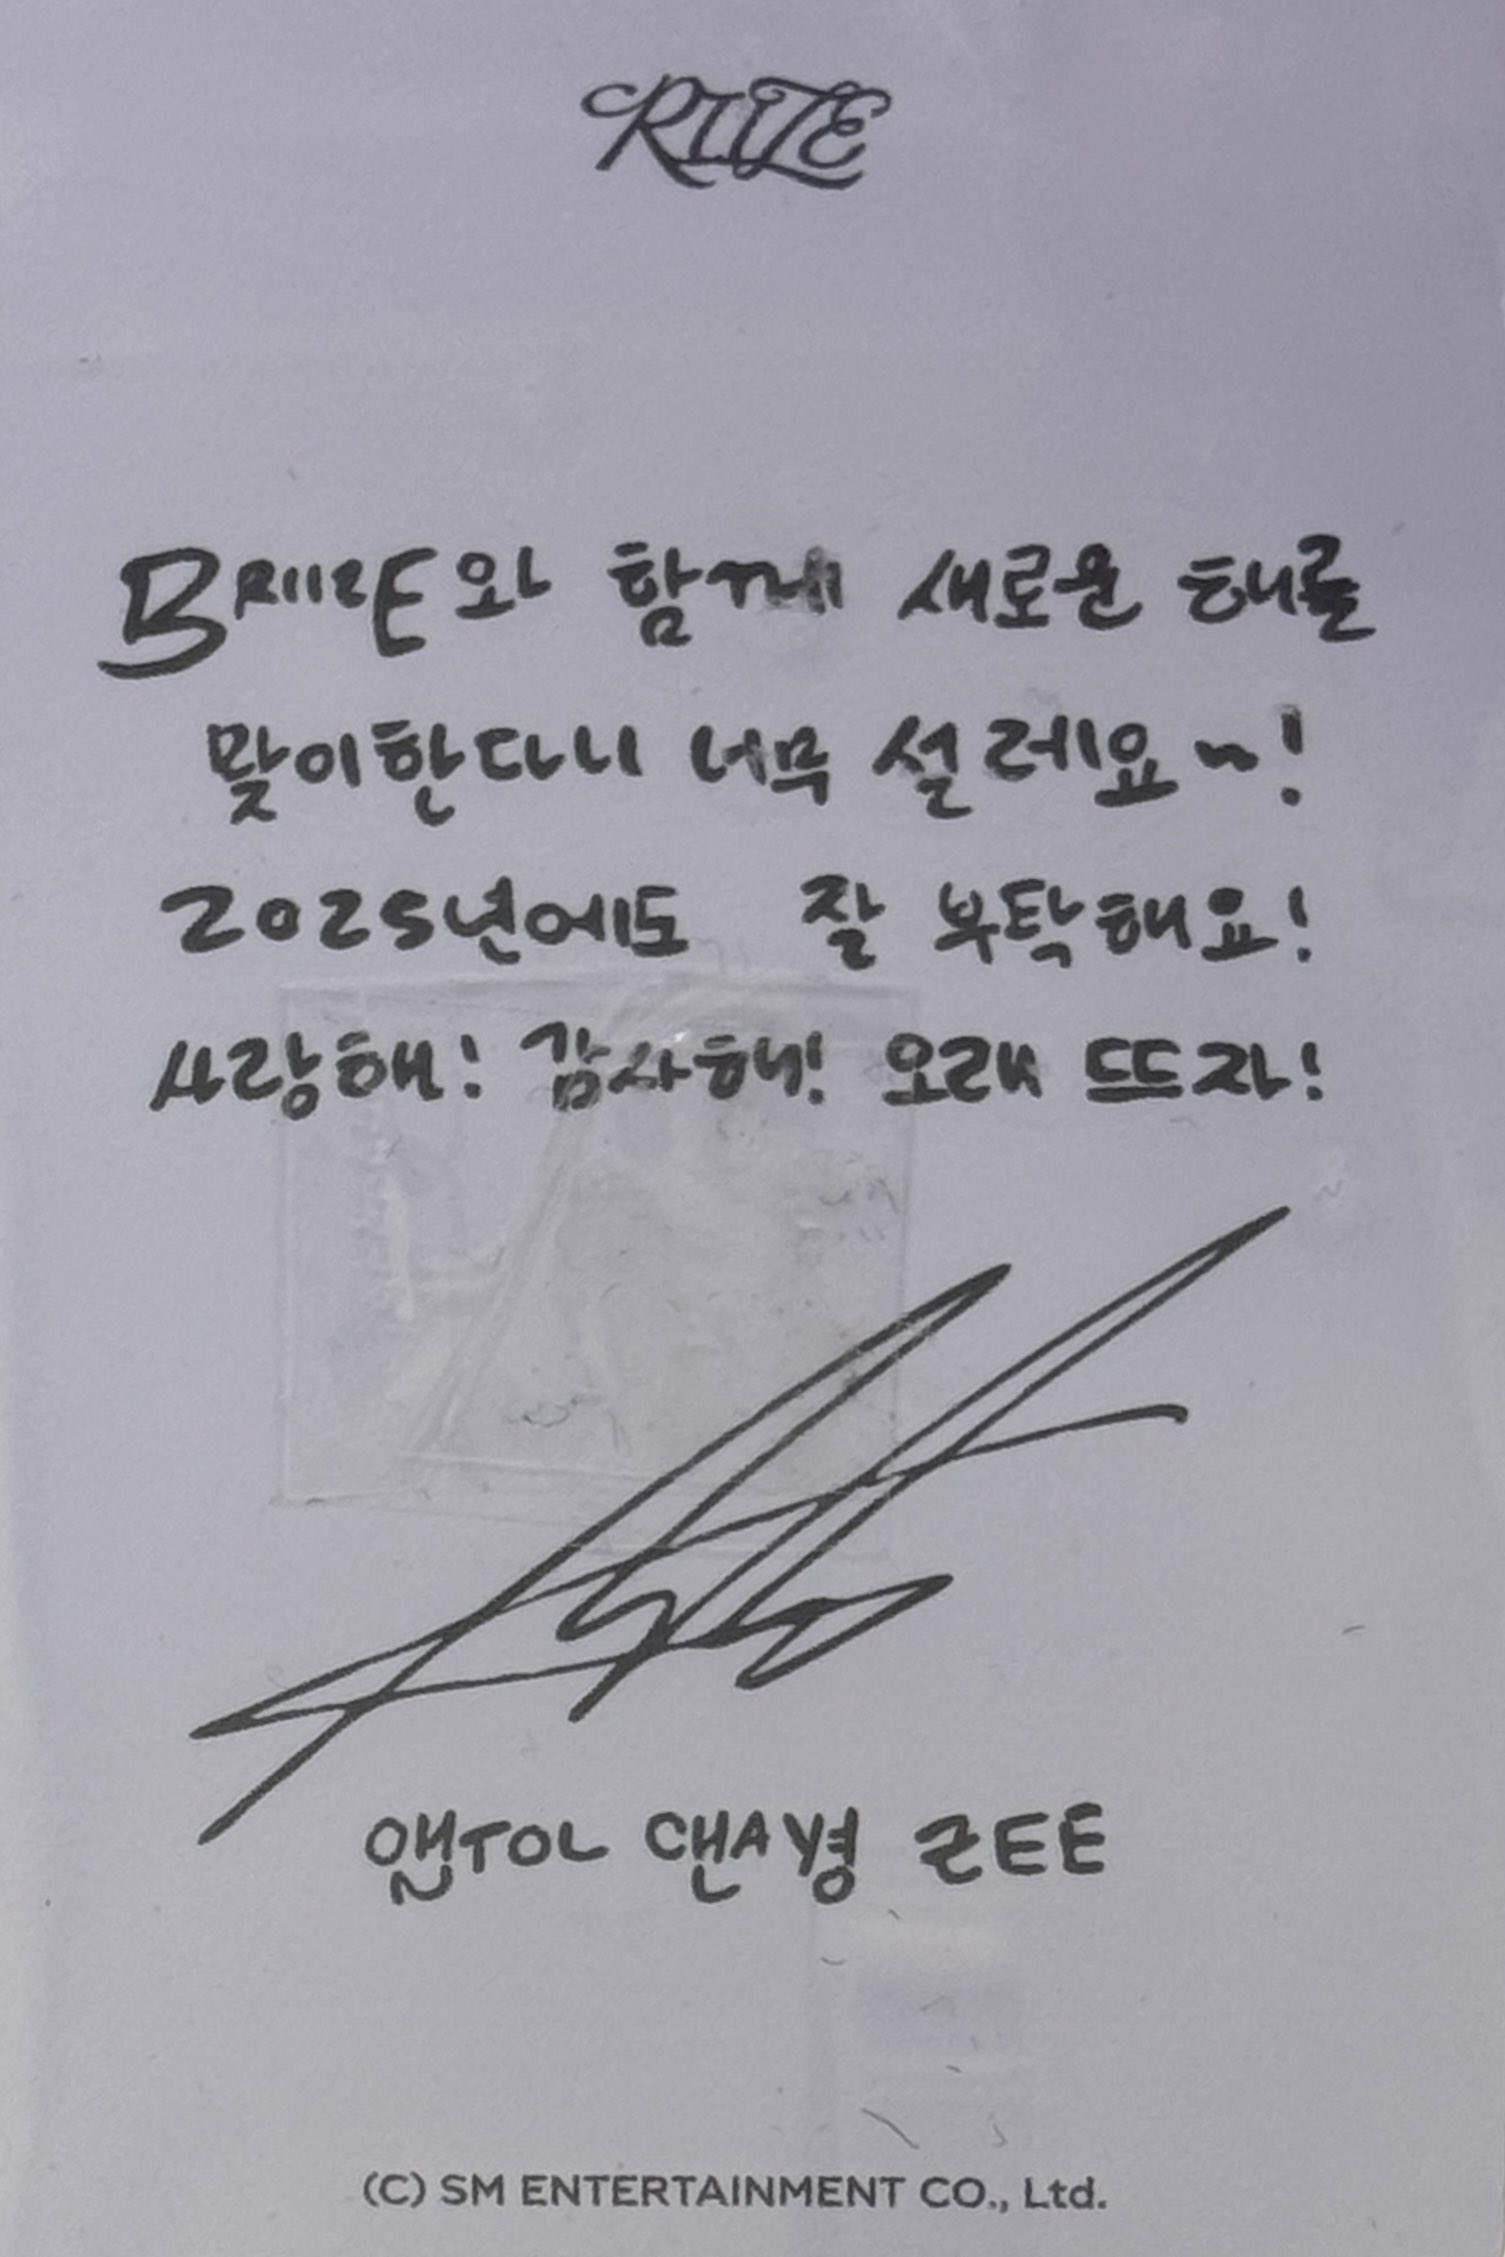 RIIZE
BRIIZE와 함께 새로운 해를
맞이한다니 너무 설레요~!
2025년에도 잘 부탁해요!
사랑해! 감사해! 오래 뜨자!
앤TOL 챈A영 ZEE
(C) SM ENTERTAINMENT CO., Ltd.